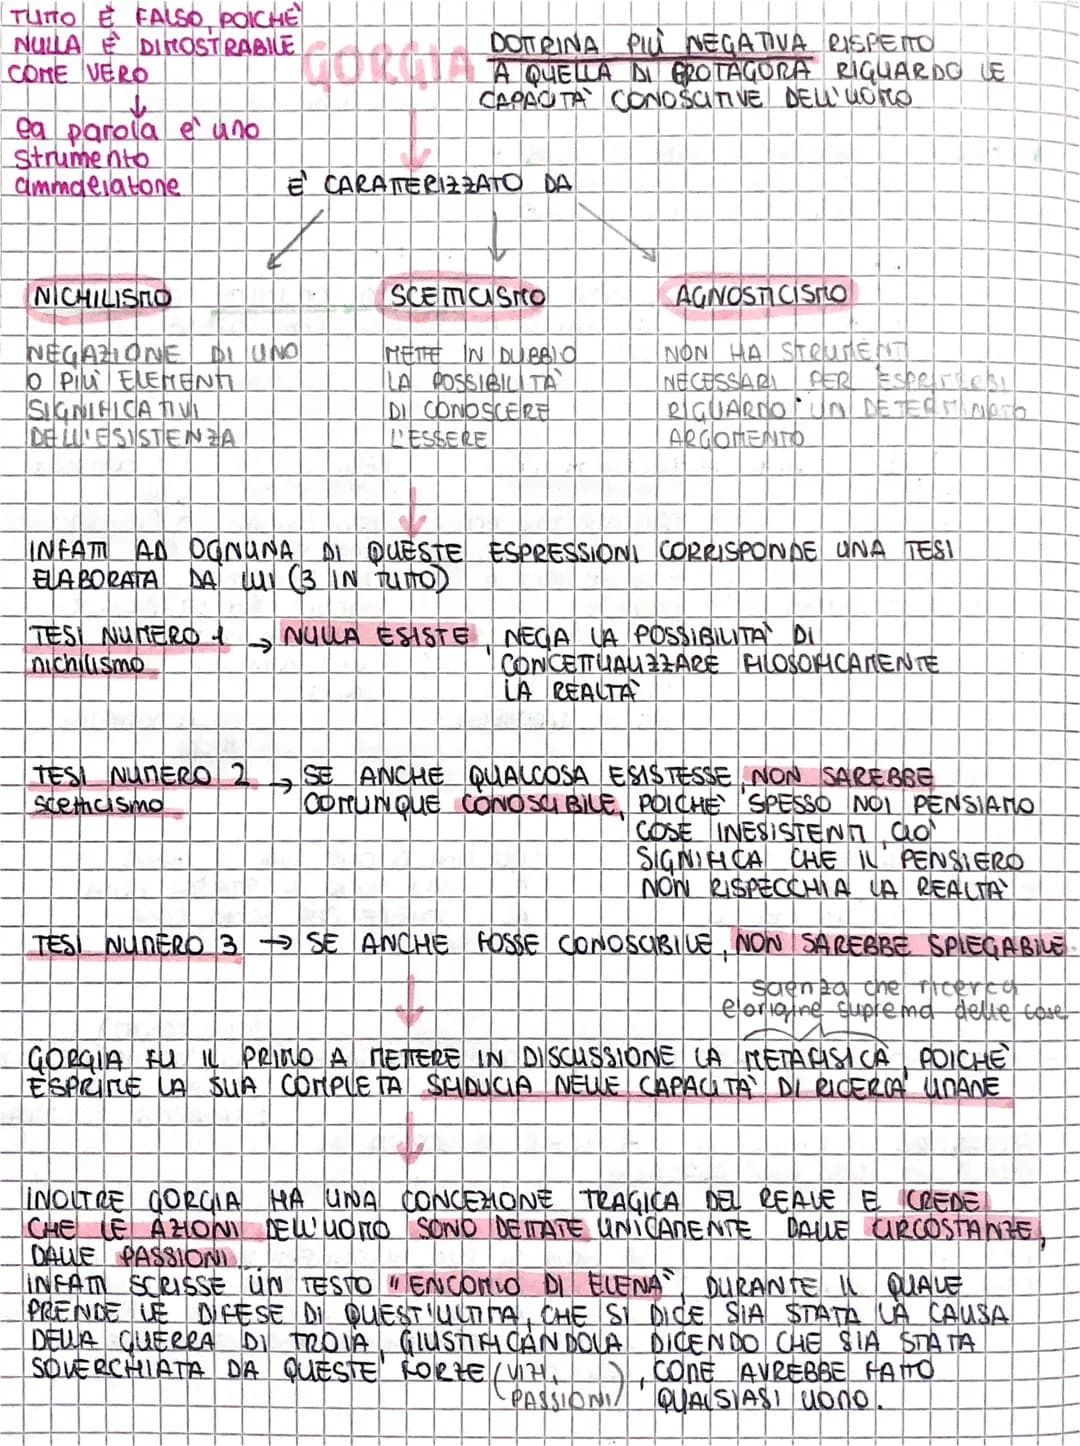 TUTTO È FALSO, POICHÈ
NULLA È DIMOSTRABILE
COME VERO
la parola e' uno
strumento
ammaliatore
GORGIA
DOTTRINA PIÙ NEGATIVA RISPETTO
A QUELLA DI PROTAGORA RIGUARDO LE
CAPACITA' CONOSCITIVE DELL'UOMO
E' CARATTERIZZATO DA
NICHILISMO
NEGAZIONE DI UNO
O PIÙ ELEMENTI
SIGNIFICATIVI
DELL'ESISTENZA
SCETTICISMO
METTE IN DUBBIO
LA POSSIBILITA'
DI CONOSCERE
L'ESSERE
AGNOSTICISMO
NON HA STRUMENTI
NECESSARI PER ESPRIMERSI
RIGUARDO UN DETERMINATO
ARGOMENTO
INFATTI AD OGNUNA DI QUESTE ESPRESSIONI CORRISPONDE UNA TESI
ELABORATA DA LUI (3 IN TUTTO)
TESI NUMERO 1 → NULLA ESISTE, NEGA LA POSSIBILITA' DI
nichilismo CONCETTUALIZZARE FILOSOFICAMENTE
LA REALTA'
TESI NUMERO 2 → SE ANCHE QUALCOSA ESISTESSE, NON SAREBBE
scetticismo COMUNQUE CONOSCIBILE, POICHE' SPESSO NOI PENSIAMO
COSE INESISTENTI, CIO'
SIGNIFICA CHE IL PENSIERO
NON RISPECCHIA LA REALTA'
TESI NUMERO 3 → SE ANCHE FOSSE CONOSCIBILE, NON SAREBBE SPIEGABILE
scienza che ricerca
l'origine suprema delle cose
GORGIA FU IL PRIMO A METTERE IN DISCUSSIONE LA METAFISICA, POICHE'
ESPRIME LA SUA COMPLETA SFIDUCIA NELLE CAPACITA' DI RICERCA UMANE
INOLTRE GORGIA HA UNA CONCEZIONE TRAGICA DEL REALE E CREDE
CHE LE AZIONI DELL'UOMO SONO DETTATE UNICAMENTE DALLE CIRCOSTANZE,
DALLE PASSIONI.
INFATTI SCRISSE UN TESTO "ENCOMIO DI ELENA", DURANTE IL QUALE
PRENDE LE DIFESE DI QUEST'ULTIMA, CHE SI DICE SIA STATA LA CAUSA
DELLA GUERRA DI TROIA, GIUSTIFICANDOLA DICENDO CHE SIA STATA
SOVERCHIATA DA QUESTE FORZE (VIZI, PASSIONI), COME AVREBBE FATTO
QUALSIASI UOMO.